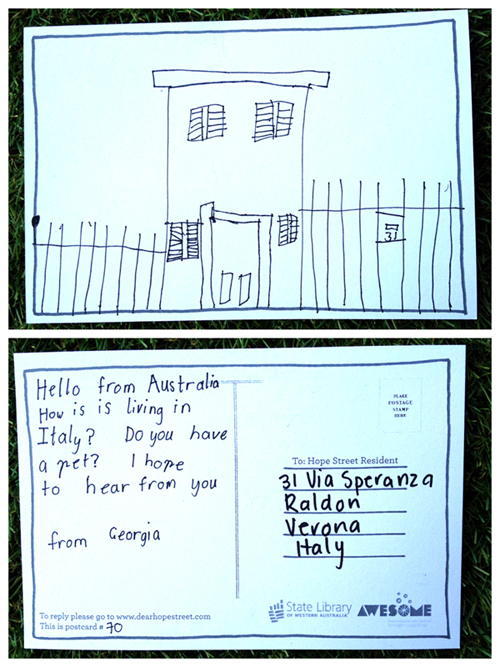 31
Hello from Australia
How is is living in
Italy? Do you have
a pet? I hope
to hear from you
from Georgia
PLACE
POSTAGE
STAMP
HERE
To: Hope Street Resident
31 Via Speranza
Raldon
Verona
Italy
To reply please go to www.dearhopestreet.com
This is postcard # 70
State Library
OF WESTERN AUSTRALIA
AWESOME